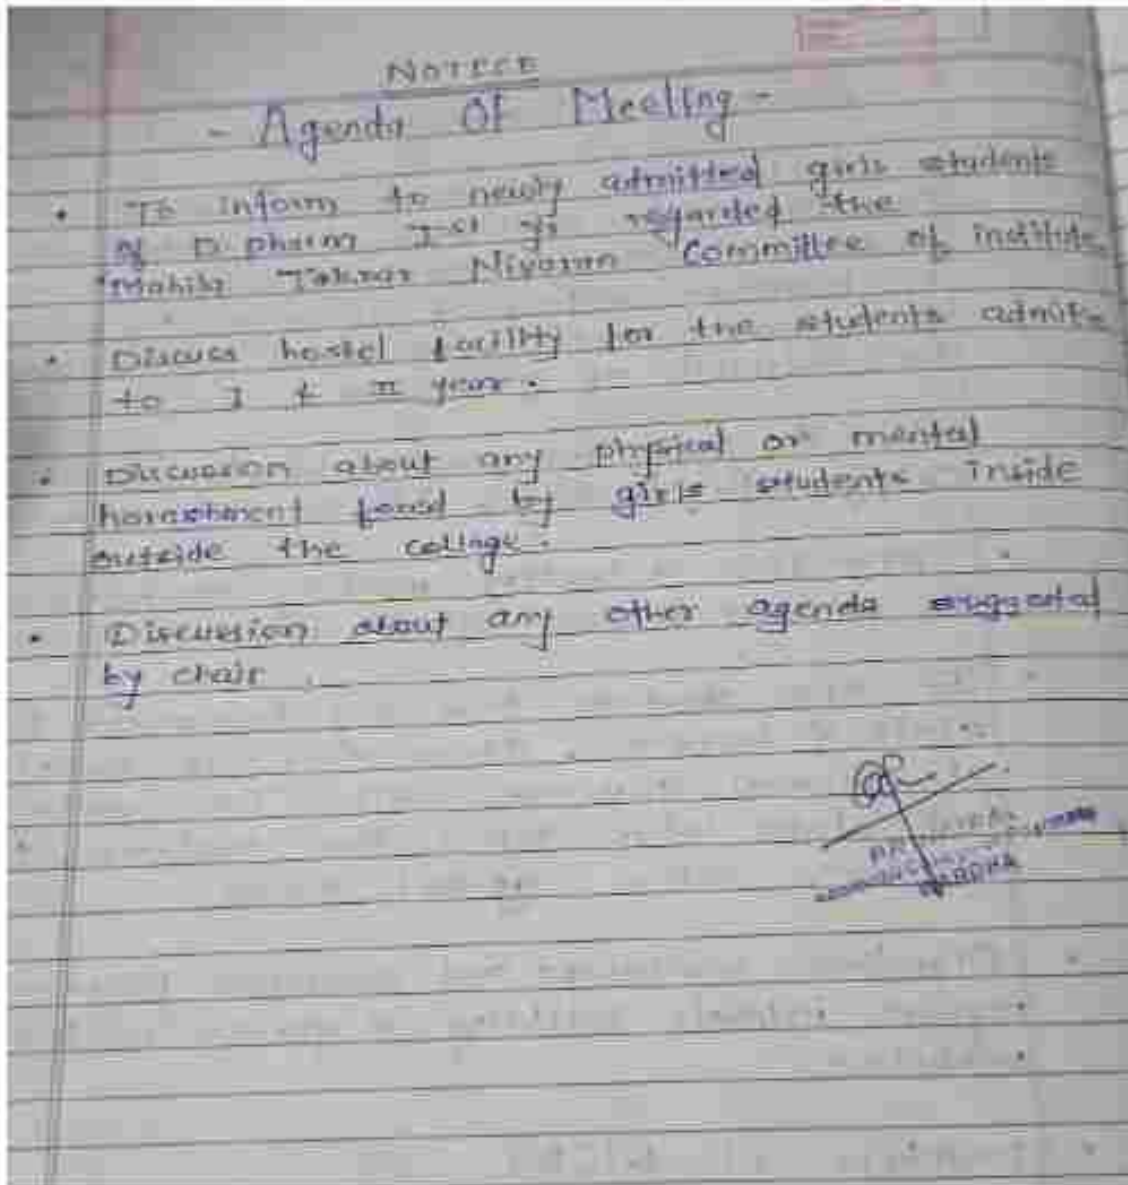 NOTICE
- Agenda Of Meeting -
• To inform to newly admitted girls students
of D. pharm Ist yr regarded the
Mahila Takrar Nivaran Committee of institute.
• Discuss hostel facility for the students admits
to I & II year.
• Discussion about any physical or mental
harashment faced by girls students inside
outside the college.
• Discussion about any other agenda suggested
by chair.
PRINCIPAL
WARDHA